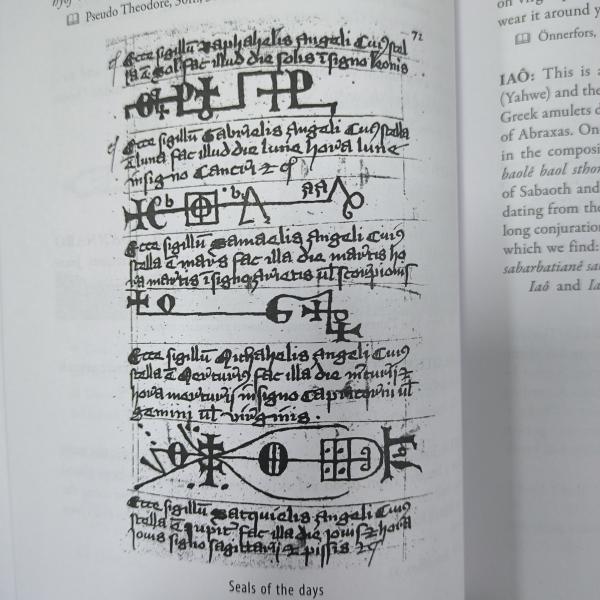 Pseudo Theodore,
71
Ecce sigillũ Raphahelis Angeli Cuiꝰ stel
la ē Sol fac illud die solis ĩ signo leonis
Ecce sigillũ Gabrielis Angeli Cuiꝰ stella
ē luna fac illud die lune hora lune
in signo Cancri
b b
Ecce sigillũ Samaelis Angeli Cuiꝰ
stella ē mars fac illa die martis ho
ra martis ĩ signo Arietis ul scorpionis
Ecce sigillũ Michahelis Angeli Cuiꝰ
stella ē Mercuriꝰ fac illa die
hora mercurij in signo Capricornii ul
gemini ul virginis.
Ecce sigillũ Satquielis Angeli Cuiꝰ
stella ē Jupit fac illa die Jouis hora
Jouis signo sagittarii piscis
Seals of the days
wear it around
Önnerfors,
IAÔ: This is
(Yahwe) and the
Greek amulets
of Abraxas. On
in the
baolê baol
of Sabaoth and
dating from the
long
which we find:
sabarbatianê
Iaô and